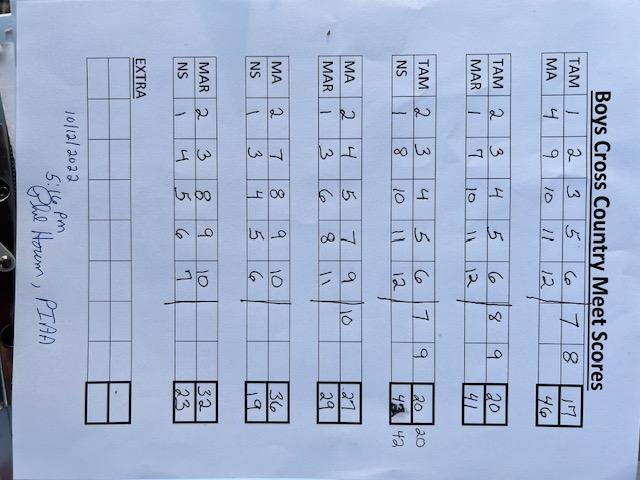 Boys Cross Country Meet Scores
TAM 1 2 3 5 6 7 8 17
MA 4 9 10 11 12 46
TAM 2 3 4 5 6 8 9 20
MAR 1 7 10 11 12 41
TAM 2 3 4 5 6 7 9 20 20
NS 1 8 10 11 12 42
MA 2 4 5 7 9 10 27
MAR 1 3 6 8 11 29
MA 2 7 8 9 10 36
NS 1 3 4 5 6 19
MAR 2 3 8 9 10 32
NS 1 4 5 6 7 23
EXTRA
10/12/2022
5:16 pm
PIAA